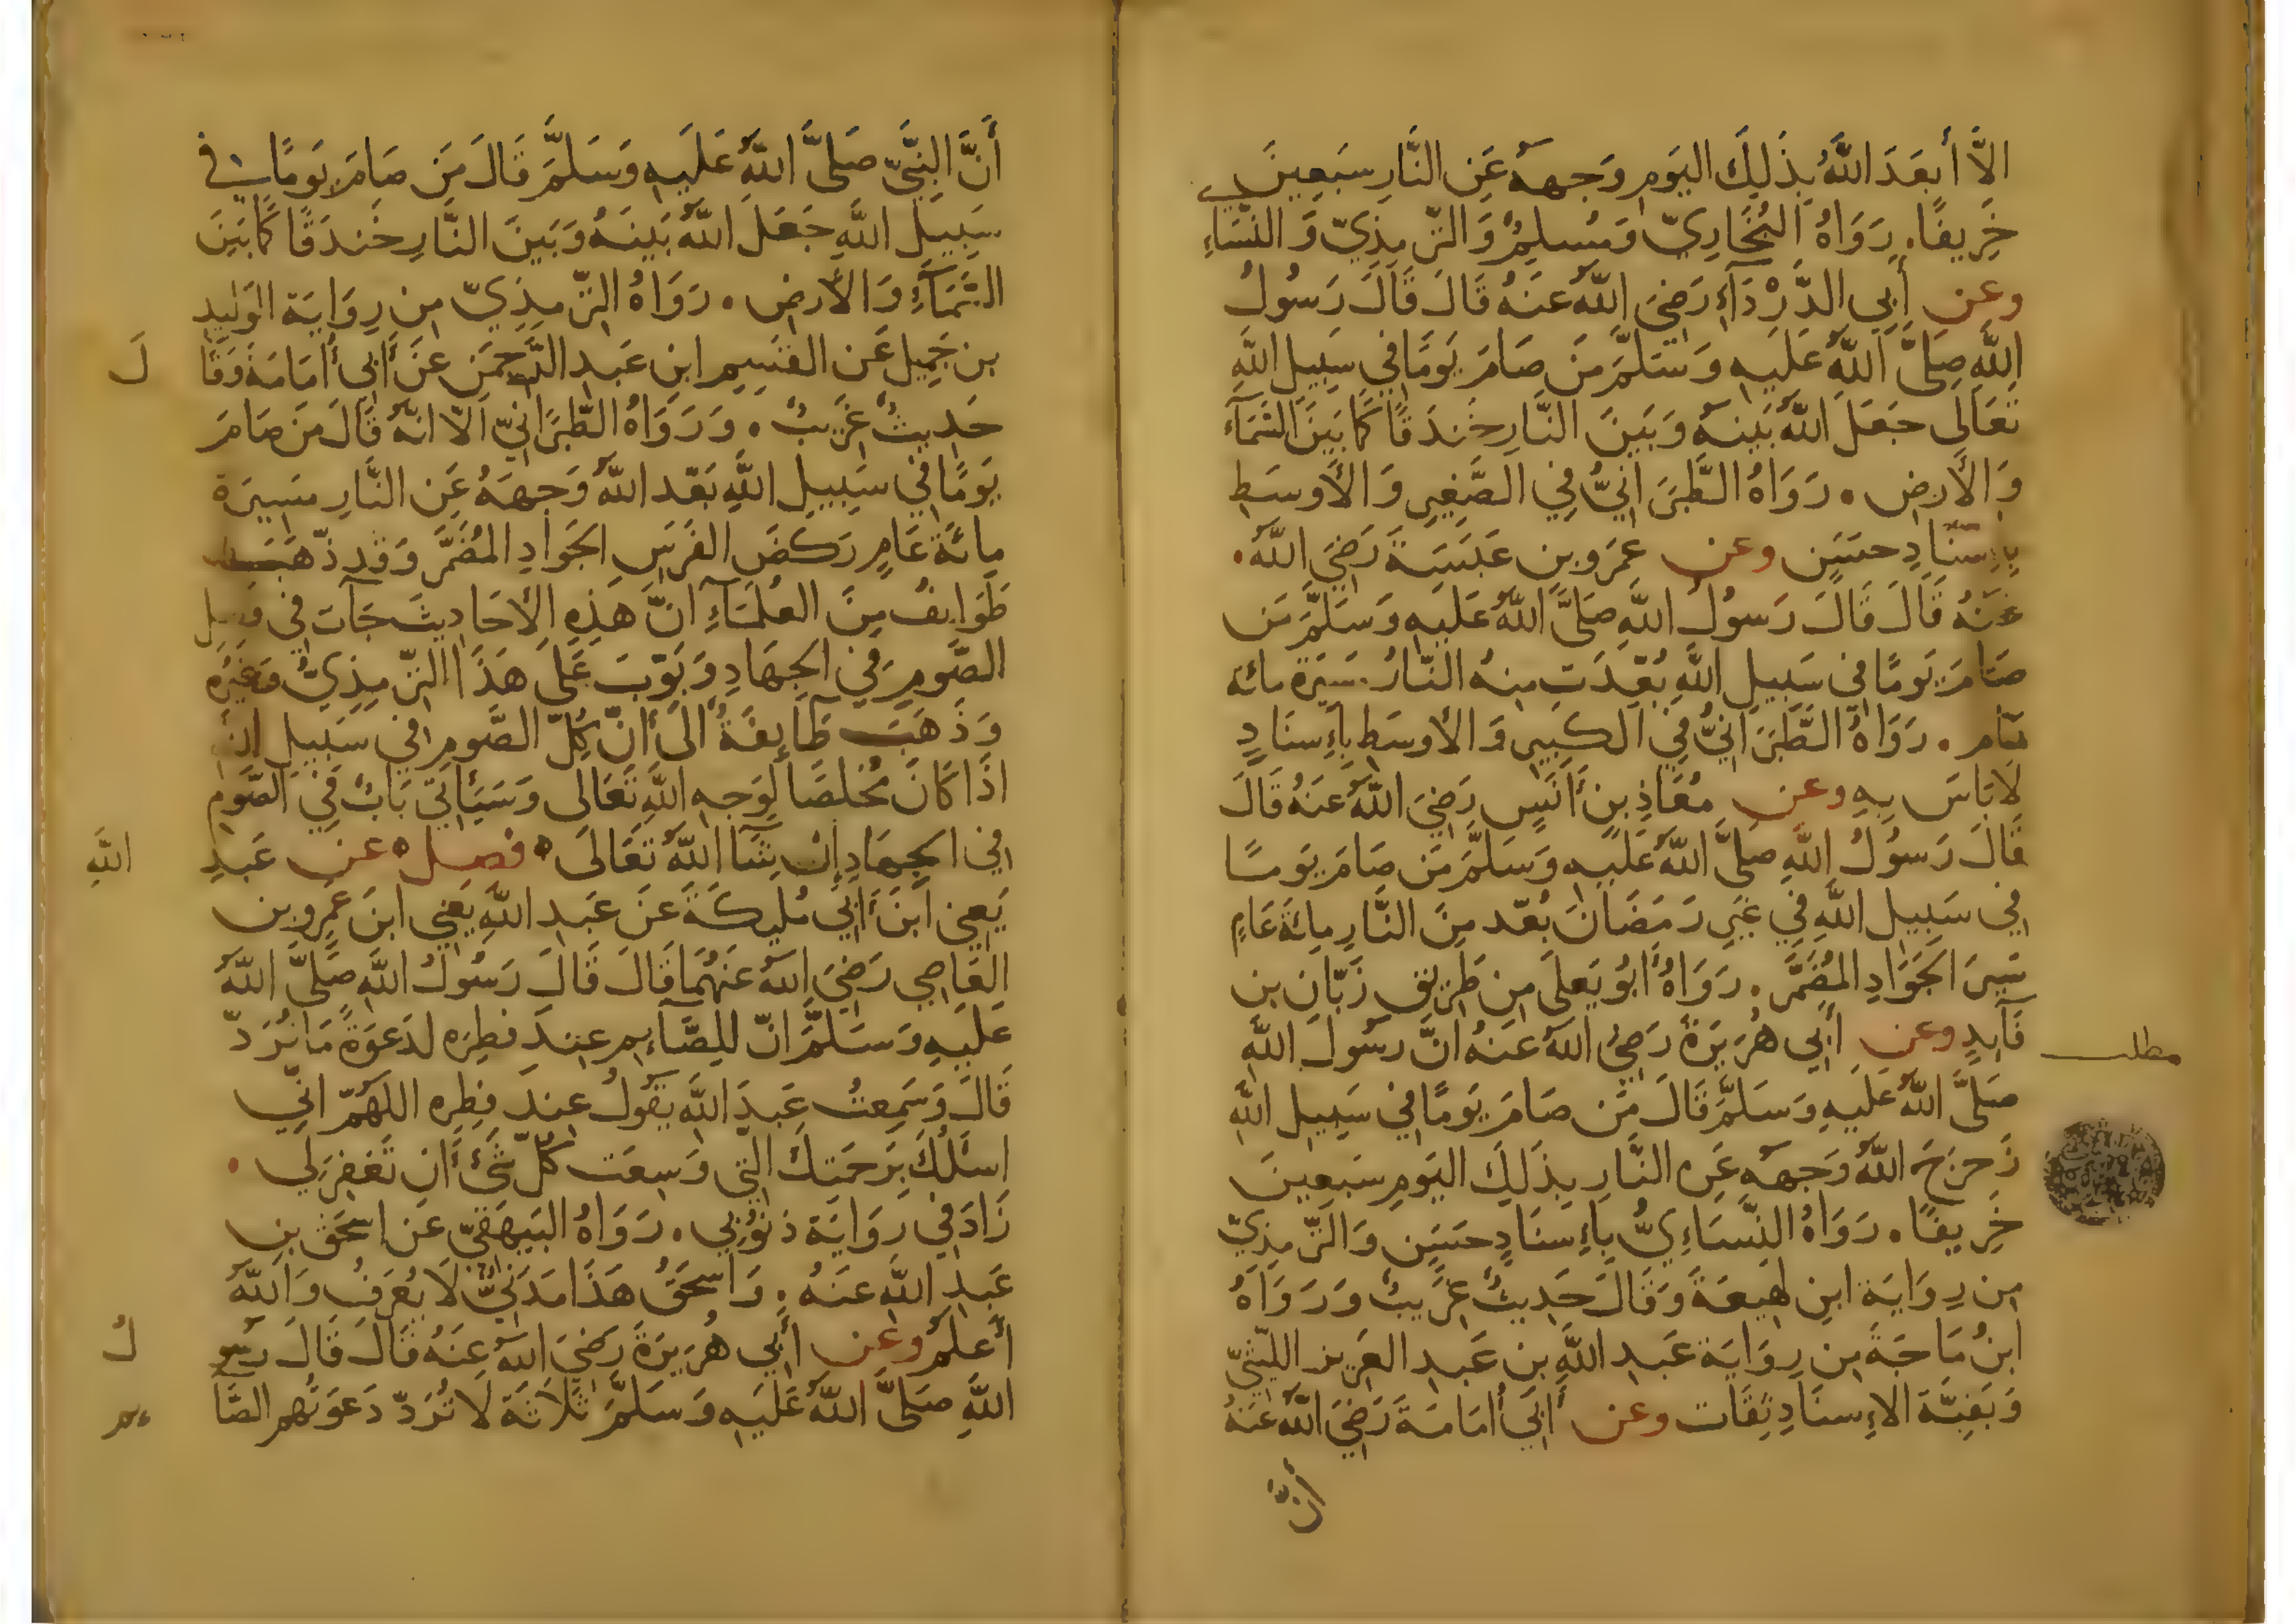 الَّا أَبعَدَ اللَّهُ بِذَلِكَ اليَومِ وَجهَهُ عَنِ النَّارِ سَبَعِينَ
خَرِيفًا. رَوَاهُ البُخَارِيّ وَمُسلِمٌ وَالتِّرمِذِيّ وَالنّسَاءِي
وعن أَبِي الدَّرْدَآءِ رَضِيَ اللَّهُ عَنهُ قَالَ قَالَ رَسُولُ
اللَّهِ صَلَّى اللَّهُ عَلَيهِ وَسَلَّمَ مَن صَامَ يَومًا فِي سَبِيلِ اللَّهِ
تَعَالَى جَعَلَ اللَّهُ بَينَهُ وَبَينَ النَّارِ خَندَقًا كَمَا بَينَ السَّمَآءِ
وَالأَرضِ. رَوَاهُ الطَّبَرَانِيُّ فِي الصَّغِيرِ وَالأَوسَطِ
بِإِسنَادٍ حَسَنٍ وعن عَمرِو بنِ عَبَسَةَ رَضِيَ اللَّهُ.
عَنهُ قَالَ قَالَ رَسُولُ اللَّهِ صَلَّى اللَّهُ عَلَيهِ وَسَلَّمَ مَن
صَامَ يَومًا فِي سَبِيلِ اللَّهِ بُعِّدَت مِنهُ النَّارُ مَسِيَرةَ مائة
عَام. رَوَاهُ الطَّبَرَانِيُّ فِي الكَبِيرِ وَالأَوسَطِ بِإِسنَادٍ
لَا بَاسَ بِهِ وعن مُعَاذِ بنِ أَنَسٍ رَضِيَ اللَّهُ عَنهُ قَالَ
قَالَ رَسُولُ اللَّهِ صَلَّى اللَّهُ عَلَيهِ وَسَلَّمَ مَن صَامَ يَومًا
فِي سَبِيلِ اللَّهِ فِي غَيرِ رَمَضَانَ بُعّد مِنَ النَّارِ مِائَةَ عَامٍ
سَيرَ الجَوَادِ المُضَمَّرِ. رَوَاهُ أَبُو يَعلَى مِن طَرِيقِ زَبَّانِ بنِ
فَآيدٍ وعن أَبِي هُرَيرَةَ رَضِيَ اللَّهُ عَنهُ انَّ رَسُولَ اللَّهِ
مطلب
صَلَّى اللَّهُ عَلَيهِ وَسَلَّمَ قَالَ مَن صَامَ يَومًا فِي سَبِيلِ اللَّهِ
زَحزَحَ اللَّهُ وَجهَهُ عَنِ النَّارِ بِذَلِكَ اليَومِ سَبعِينَ
خَرِيفًا. رَوَاهُ النَّسَاءِيُّ بِإِسنَادٍ حَسَنٍ وَالتِّرمِذِيّ
مِن رِوَايَة ابنِ لهِيعَةَ وَقَالَ حَدِيثٌ غَرِيبٌ وَرَوَاهُ
ابنُ مَاجَةَ مِن رِوَايَة عَبدِ اللَّهِ بنِ عَبدِ العَزِيزِ اللَّيثيّ
وَبَقِيَّة الإِسنَادِ ثِقَات وعن أَبِي أُمَامَةَ رَضِيَ اللَّهُ عَنهُ
أَنَّ
أَنَّ النَّبِيَّ صَلَّى اللَّهُ عَلَيهِ وَسَلَّمَ قَالَ مَن صَامَ يَومًا فِي
سَبِيلِ اللَّهِ جَعَلَ اللَّهُ بَينَهُ وَبَينَ النَّارِ خَندَقًا كَمَا بَينَ
السَّمَآءِ وَالأَرضِ. رَوَاهُ التِّرمِذِيّ مِن رِوَايَة الوَلِيدِ
بنِ جَمِيلٍ عَنِ القَسِيمِ ابنِ عَبدِ الرَّحمَنِ عَن أَبِي أُمَامَةَ وَقَا
لَ
حَدِيثٌ غَرِيبٌ. وَرَوَاهُ الطَّبَرَانِيّ الَّا انّهُ قَالَ مَن صَامَ
يَومًا فِي سَبِيلِ اللَّهِ بَعّد اللَّهُ وَجهَهُ عَنِ النَّارِ مَسِيرَة
مِائَة عَامٍ رَكضَ الفَرَسِ الجَوَادِ المُضَمَّرِ وَقَد ذَهَبَت
طَوَايفُ مِنَ العُلَمَآءِ انَّ هَذِهِ الأَحَادِيثَ جَآت فِي فَضلِ
الصَّومِ فِي الجِهَادِ وَبَوّبَ عَلَى هَذَا التِّرمِذِيُّ وَغَيرُه
وَذَهَبَت طَآيِفَةٌ الَى أَنَّ كُلّ الصَّومِ فِي سَبِيلِ اللَّه
اذَا كَانَ مُخلَصًا لِوَجهِ اللَّهِ تَعَالَى وَسَيَأتِي بَابٌ فِي الصَّومِ
فِي الجِهَادِ إِنْ شَآ اللَّهُ تَعَالَى ٥ فصل ٥ عن عَبدِ
اللَّهِ
يَعنِي ابنَ أَبِي مُلَيكَةَ عَن عَبدِ اللَّهِ يَعنِي ابنَ عَمرِو بنِ
العَاصِي رَضِيَ اللَّهُ عَنهُمَا قَالَ قَالَ رَسُولُ اللَّهِ صَلَّى اللَّهُ
عَلَيهِ وَسَلَّمَ انّ لِلصَّآيِم عِندَ فِطرِه لدَعوَةً مَا تُرَدّ
قَالَ وَسَمِعتُ عَبدَ اللَّهِ يَقُولُ عِندَ فِطرِه اللَّهُمّ انِّي
اسئَلُكَ بِرَحمَتِكَ الَّتِي وَسِعَت كُلّ شَيءٍ أَن تَغفِرَ لِي.
زَادَ فِي رِوَايَة ذُنُوبِي. رَوَاهُ البَيهَقِيّ عَن اسحَقَ بنِ
عَبدِ اللَّهِ عَنهُ. وَاسحَقُ هَذَا مَدَنِيٌّ لَا يُعرَفُ وَاللَّهُ
أَعلَمُ وعن أَبِي هُرَيرَةَ رَضِيَ اللَّهُ عَنهُ قَالَ قَالَ رَسُو
لُ
اللَّهِ صَلَّى اللَّهُ عَلَيهِ وَسَلَّمَ ثَلَاثَة لَا تُرَدّ دَعوَتُهم الصَّآ
ءِم